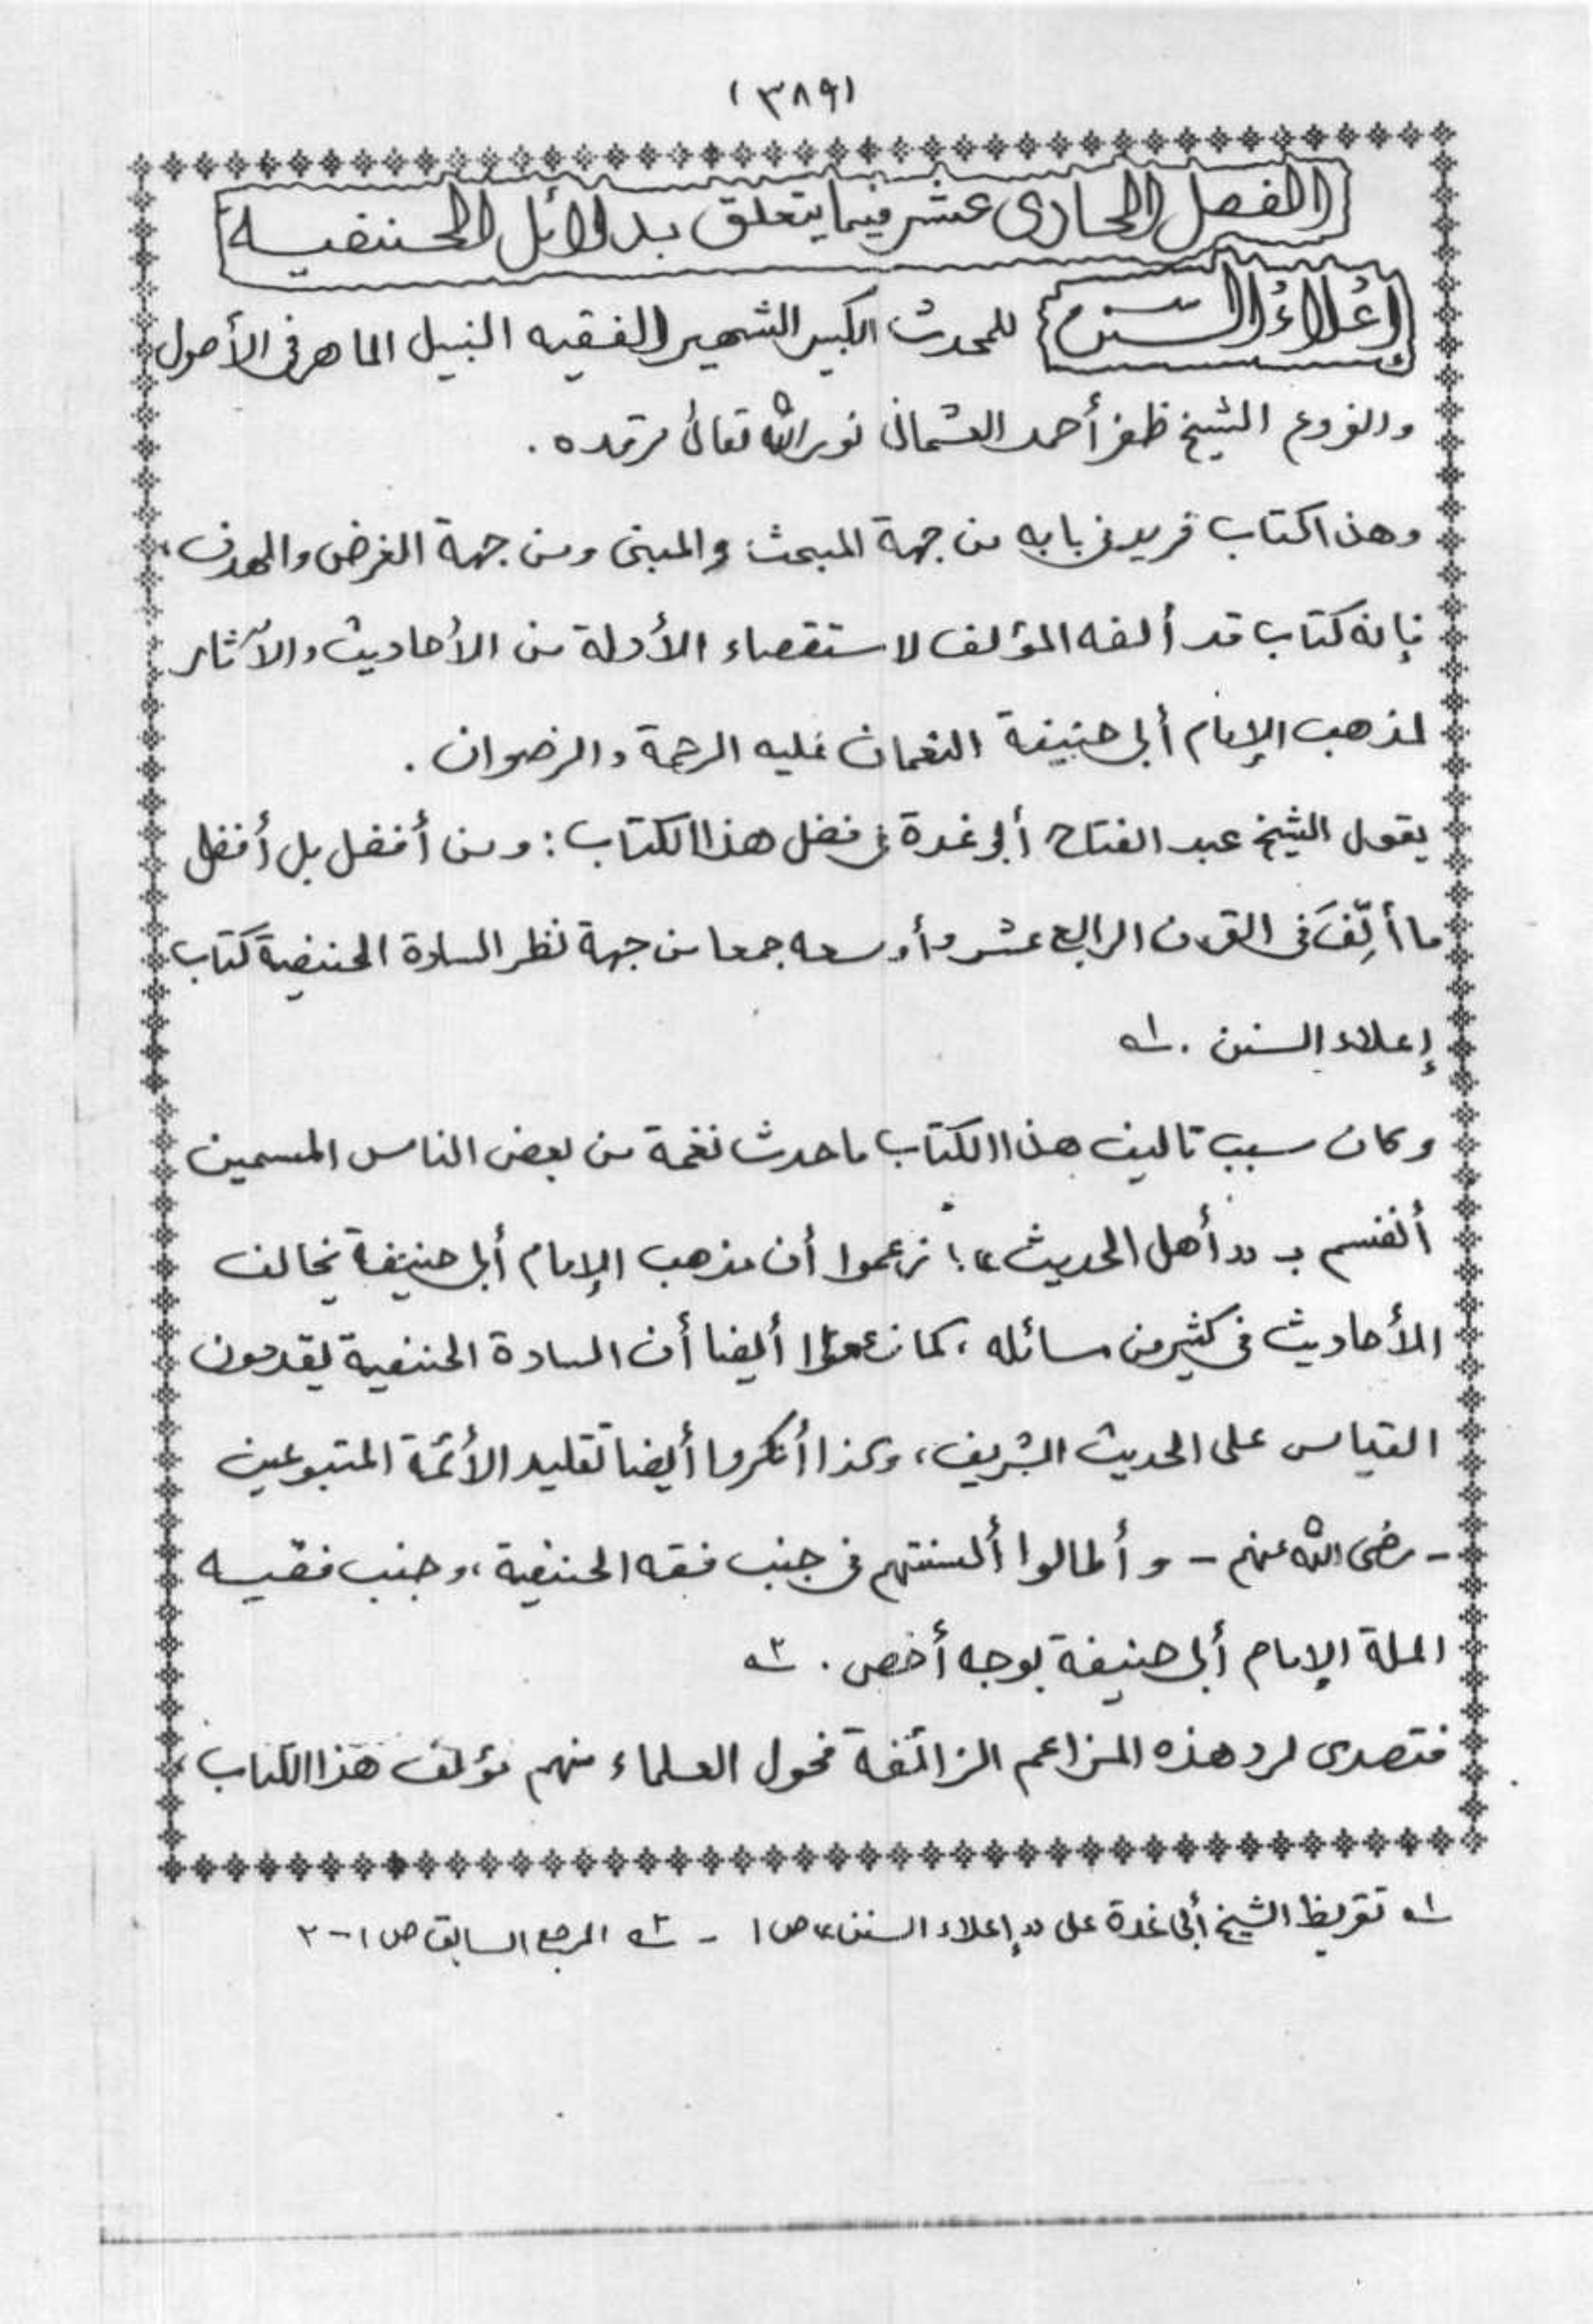 (٣٨٩)
الفصل الحادى عشر فيما يتعلق بدلائل الحنفيه
إعلاءُ السنن للمحدث الكبير الشهير الفقيه النبيل الماهر فى الأصول
والفروع الشيخ ظفر أحمد العثمانى نور الله تعالى مرقده .
وهذا كتاب فريد فى بابه من جهة المبحث والمبنى ومن جهة الغرض والهدف ،
فإنه كتاب قد ألفه المؤلف لاستقصاء الأدلة من الأحاديث والآثار
لمذهب الإمام أبى حنيفة النعمان عليه الرحمة والرضوان .
يقول الشيخ عبد الفتاح أبو غدة فى فضل هذا الكتاب : ومن أفضل بل أفضل
ما أُلِّفَ فى القرن الرابع عشر وأوسعه جمعا من جهة نظر السادة الحنفية كتاب
إعلاء السنن . ١ه
وكان سبب تاليف هذا الكتاب ما حدث نغمة من بعض الناس المسمين
أنفسهم بـ «أهل الحديث» ؛ زعموا أن مذهب الإمام أبى حنيفة يخالف
الأحاديث فى كثير من مسائله ، كما زعموا أيضا أن السادة الحنفية يقدمون
القياس على الحديث الشريف ، وكذا أنكروا أيضا تقليد الأئمة المتبوعين
- رضى الله عنهم - وأطالوا ألسنتهم فى جنب فقه الحنفية ، وجنب فقيه
الملة الإمام أبى حنيفة بوجه أخص . ٢ه
فتصدى لرد هذه المزاعم الزائفة فحول العلماء منهم مؤلف هذا الكتاب ،
١ه تقريظ الشيخ أبى غدة على «إعلاء السنن» ص ١ - ٢ه المرجع السابق ص ١-٢